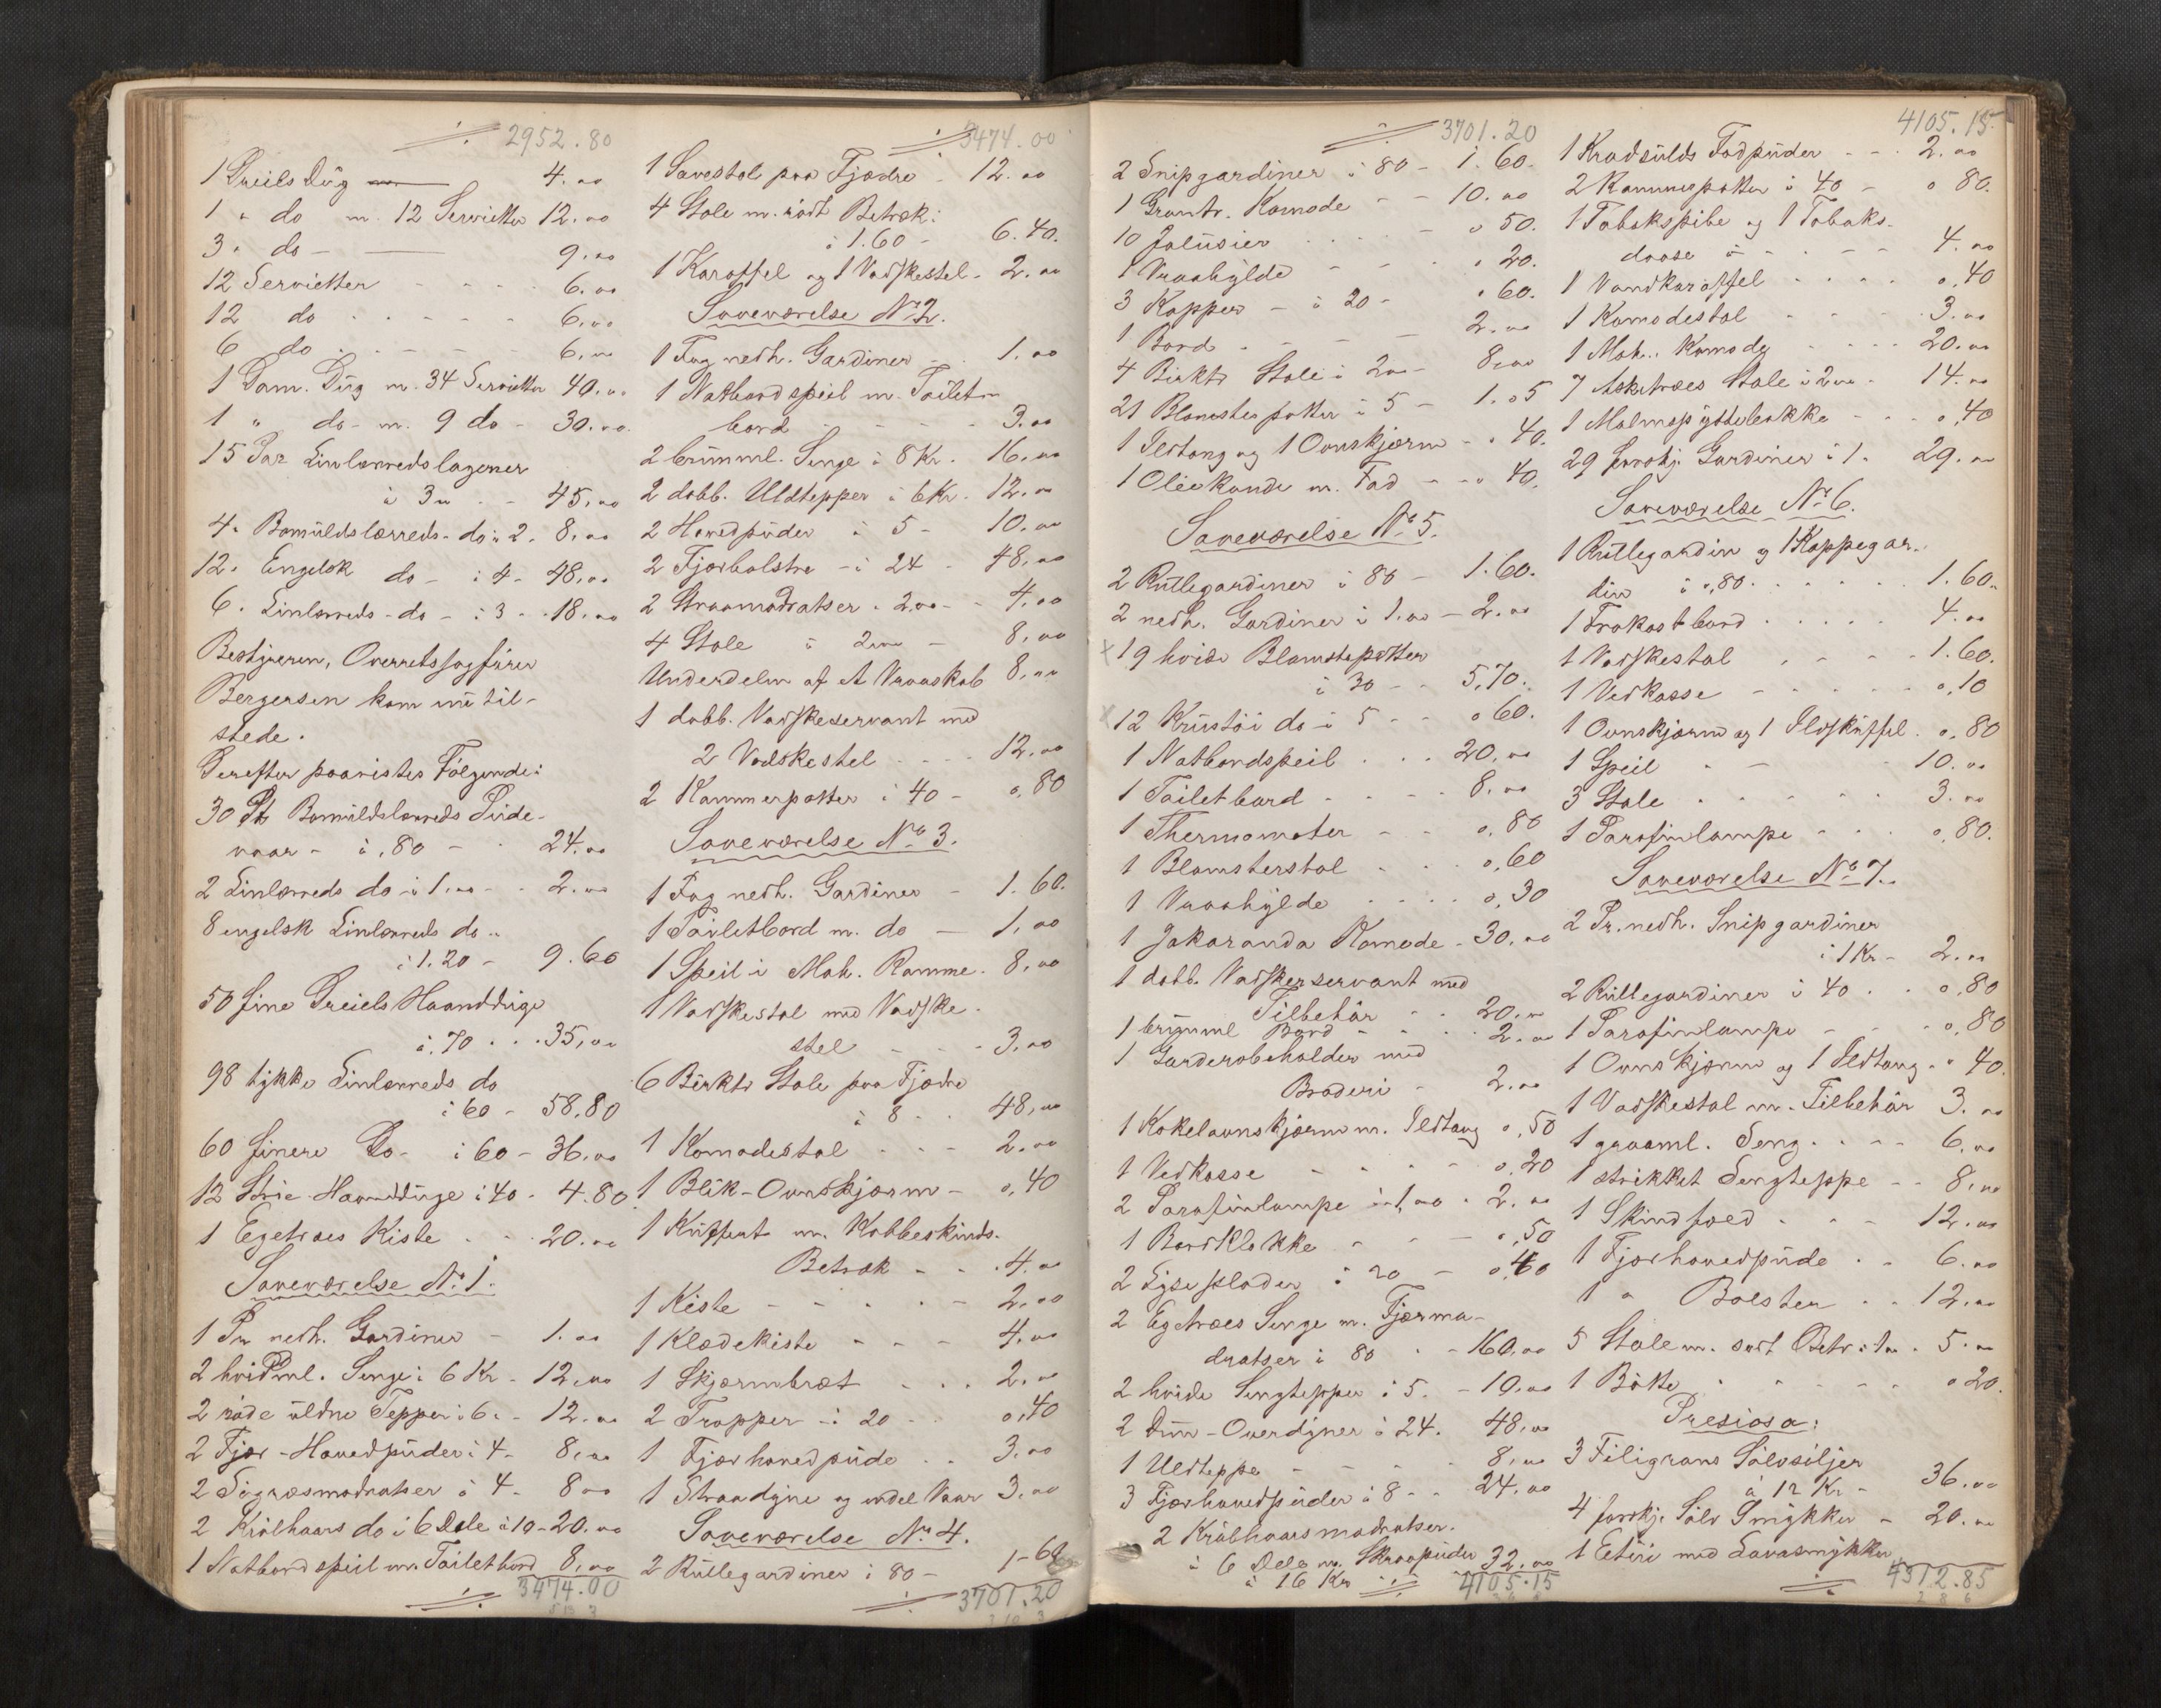 2952.80
1 Dreils Dug 4.00
1 " do m. 12 Servietter 12.00
3 " do 9.00
12 Servietter 6.00
12 do 6.00
6 do 6.00
1 Dam. Dug m. 34 Servietter 40.00
1 " do m. 9 do 30.00
15 Par Linlærredslagener
à 3 00 45.00
4 " Bomuldslærreds do à 2. 8.00
12 " Engelsk do à 4 48.00
6 " Linlærreds do à 3 18.00
Bestyreren, Overretssagfører
Bergersen kom nu til-
stede.
Derefter paavistes Følgende:
30 St Bomuldslærreds Pude-
vaar à ,80 24.00
2 Linlærreds do à 1.00 2.00
8 engelsk Linlærreds do
à 1.20 9.60
50 fine Dreiels Haandduge
à ,70 35.00
98 tykke Linlærreds do
à 60 58.80
60 finere Do à 60 36.00
12 Strie Haandduge à 40 4.80
1 Egetræes Kiste 20.00
Soveværelse No 1.
1 Pr nedh. Gardiner 1.00
2 hvidml. Senge à 6 Kr 12.00
2 røde uldne Tepper à 6 12.00
2 Fjær-Hovedpuder à 4 8.00
2 Søgræsmadratser à 4 8 00
2 Krølhaars do i 6 Dele à 10 20.00
1 Natbordspeil m. Toiletbord 8.00
3474.00
3474.00
1 Lænestol paa Fjædre 12.00
4 Stole m. rødt Betræk:
à 1.60 6.40.
1 Karaffel og 1 Vadskestel 2.00
Soveværelse No 2.
1 Fag nedh. Gardiner 1.00
1 Natbordspeil m. Toilet-
bord 3.00
2 brunml. Senge à 8 Kr. 16.00
2 dobb. Uldtepper à 6 Kr. 12.00
2 Hovedpuder à 5 10.00
2 Fjærbolstre à 24 48.00
2 Straamadratser à 2.00 4.00
4 Stole à 2.00 8.00
Underdelen af et Vraaskab 8.00
1 dobb. Vadskeservant med
2 Vadskestel 12.00
2 Kammerpotter à 40 0,80
Soveværelse No 3.
1 Fag nedh. Gardiner 1.60.
1 Toiletbord m. do 1.00
1 Speil i Mah. Ramme 8.00
1 Vadskestol med Vadske-
stel 3.00
6 Birktr Stole paa Fjædre
à 8 48.00
1 Komodestol 2.00
1 Blik-Ovnskjærm 0,40
1 Kuffert m. Kobbeskinds-
Betræk 4.00
1 Kiste 2.00
1 Klædekiste 4.00
1 Skjærmbræt 2.00
2 Trapper à 20 0,40
1 Fjærhovedpude 3.00
1 Straadyne og endel Vaar 3.00
Soveværelse No 4.
2 Rullegardiner à 80 1-60
3701.20
3701.20
2 Snipgardiner à 80 1.60.
1 Grantr. Komode 10.00
10 Jalusier 0 50.
1 Vraahylde 0 20.
3 Kopper à 20 0 60.
1 Bord 2.00
4 Birktr Stole à 2 00 8.00
21 Blomsterpotter à 5 1.05
1 Ildtang og 1 Ovnskjærm 0 40.
1 Oliekande m. Fad 0 40.
Soveværelse No 5.
2 Rullegardiner à 80 1.60.
2 nedh. Gardiner à 1.00 2.00
x 19 hvide Blomstepotter
à 30 5,70.
x 12 Krustøi do à 5 0 60.
1 Natbordspeil 20.00
1 Toiletbord 8.00
1 Thermometer 0,80
1 Blomsterstol 0,60
1 Vraahylde 0,30
1 Jakaranda Komode 30.00
1 dobb. Vadskerservant med
Tilbehør 20.00
1 brunml Bord 2.00
1 Garderobeholder med
Broderi 2.00
1 Kokelovnskjærm m. Ildtang 0,50
1 Vedkasse 0,20
2 Parafinlampe à 1,00 2.00
1 Bordklokke 0,50
2 Lyseplader à 20 0,40
2 Egetræes Senge m. Fjærma-
dratser à 80 160.00
2 hvide Sengtepper à 5. 10.00
2 Dun-Overdyner à 24. 48.00
1 Uldteppe 8.00
3 Fjærhovedpuder à 8 24.00
2 Krølhaarsmadratser.
i 6 Dele m. Skraapuder 32.00
à 16 Kr
4105.15
4105.15.
1 Kradsulds Fodpuder 2.00
2 Kammerpotter à 40 0 80.
1 Tobakspibe og 1 Tobaks-
daase 4.00
1 Vandkaraffel 0,40
1 Komodestol 3.00
1 Mah. Komode 20.00
7 Asketræes Stole à 2 00 14.00
1 Malmspyttebakke 0,40
29 forskj. Gardiner à 1. 29.00
Soveværelse No 6.
1 Rullegardin og 1 Kappegar-
din à 0,80 1.60.
1 Frokostbord 4.00
1 Vadskestol 1.60.
1 Vedkasse 0,10
1 Ovnskjærm og 1 Ildskuffel 0,80
1 Speil 10.00
3 Stole 3.00
1 Parafinlampe 0,80.
Soveværelse No 7.
2 Pr. nedh. Snipgardiner
à 1 Kr 2.00
2 Rullegardiner à 40 0,80
1 Parafinlampe 0,80
1 Ovnskjærm og 1 Ildtang 0 40.
1 Vadskestol m. Tilbehør 3.00
1 graaml. Seng 6.00
1 strikket Sengteppe 8.00
1 Skindfæld 12.00
1 Fjærhovedpude 6.00
1 " Bolster 12.00
5 Stole m. sort Betr. à 1 00 5.00
1 Bøtte 0 20.
Presiosa:
3 Filigrans Sølvsøljer
à 12 Kr 36.00
4 forskj. Sølv Smykker 20.00
1 Etui med Lavasmykker
4312.85